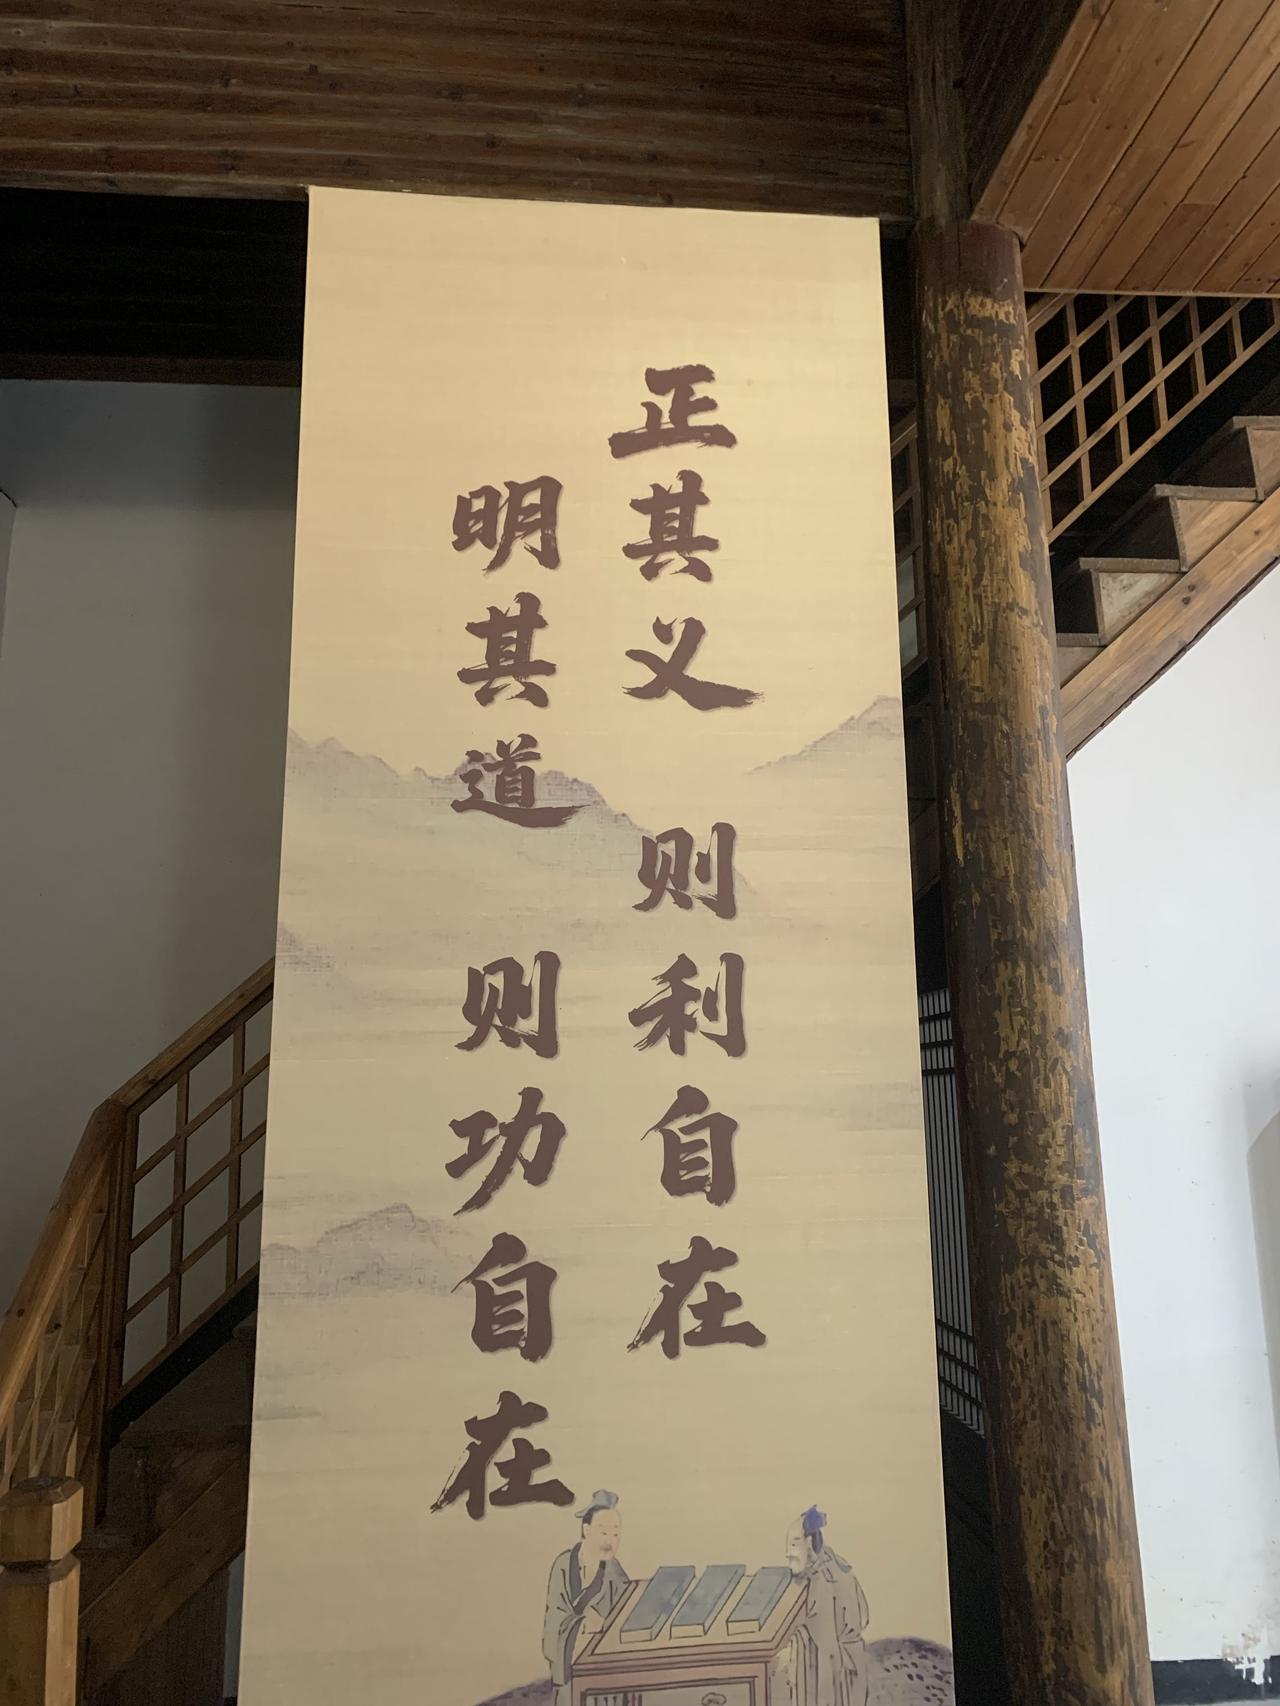 正其义 则利自在
明其道 则功自在